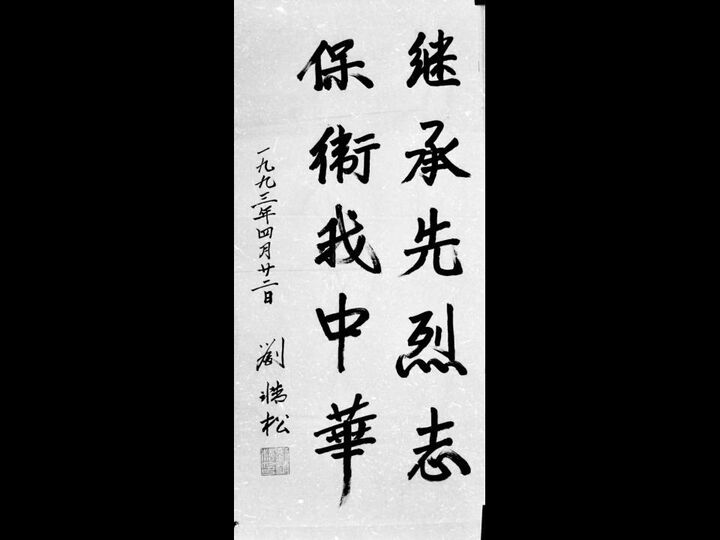 继承先烈志
保衛我中華
一九九三年四月廿二日
劉精松